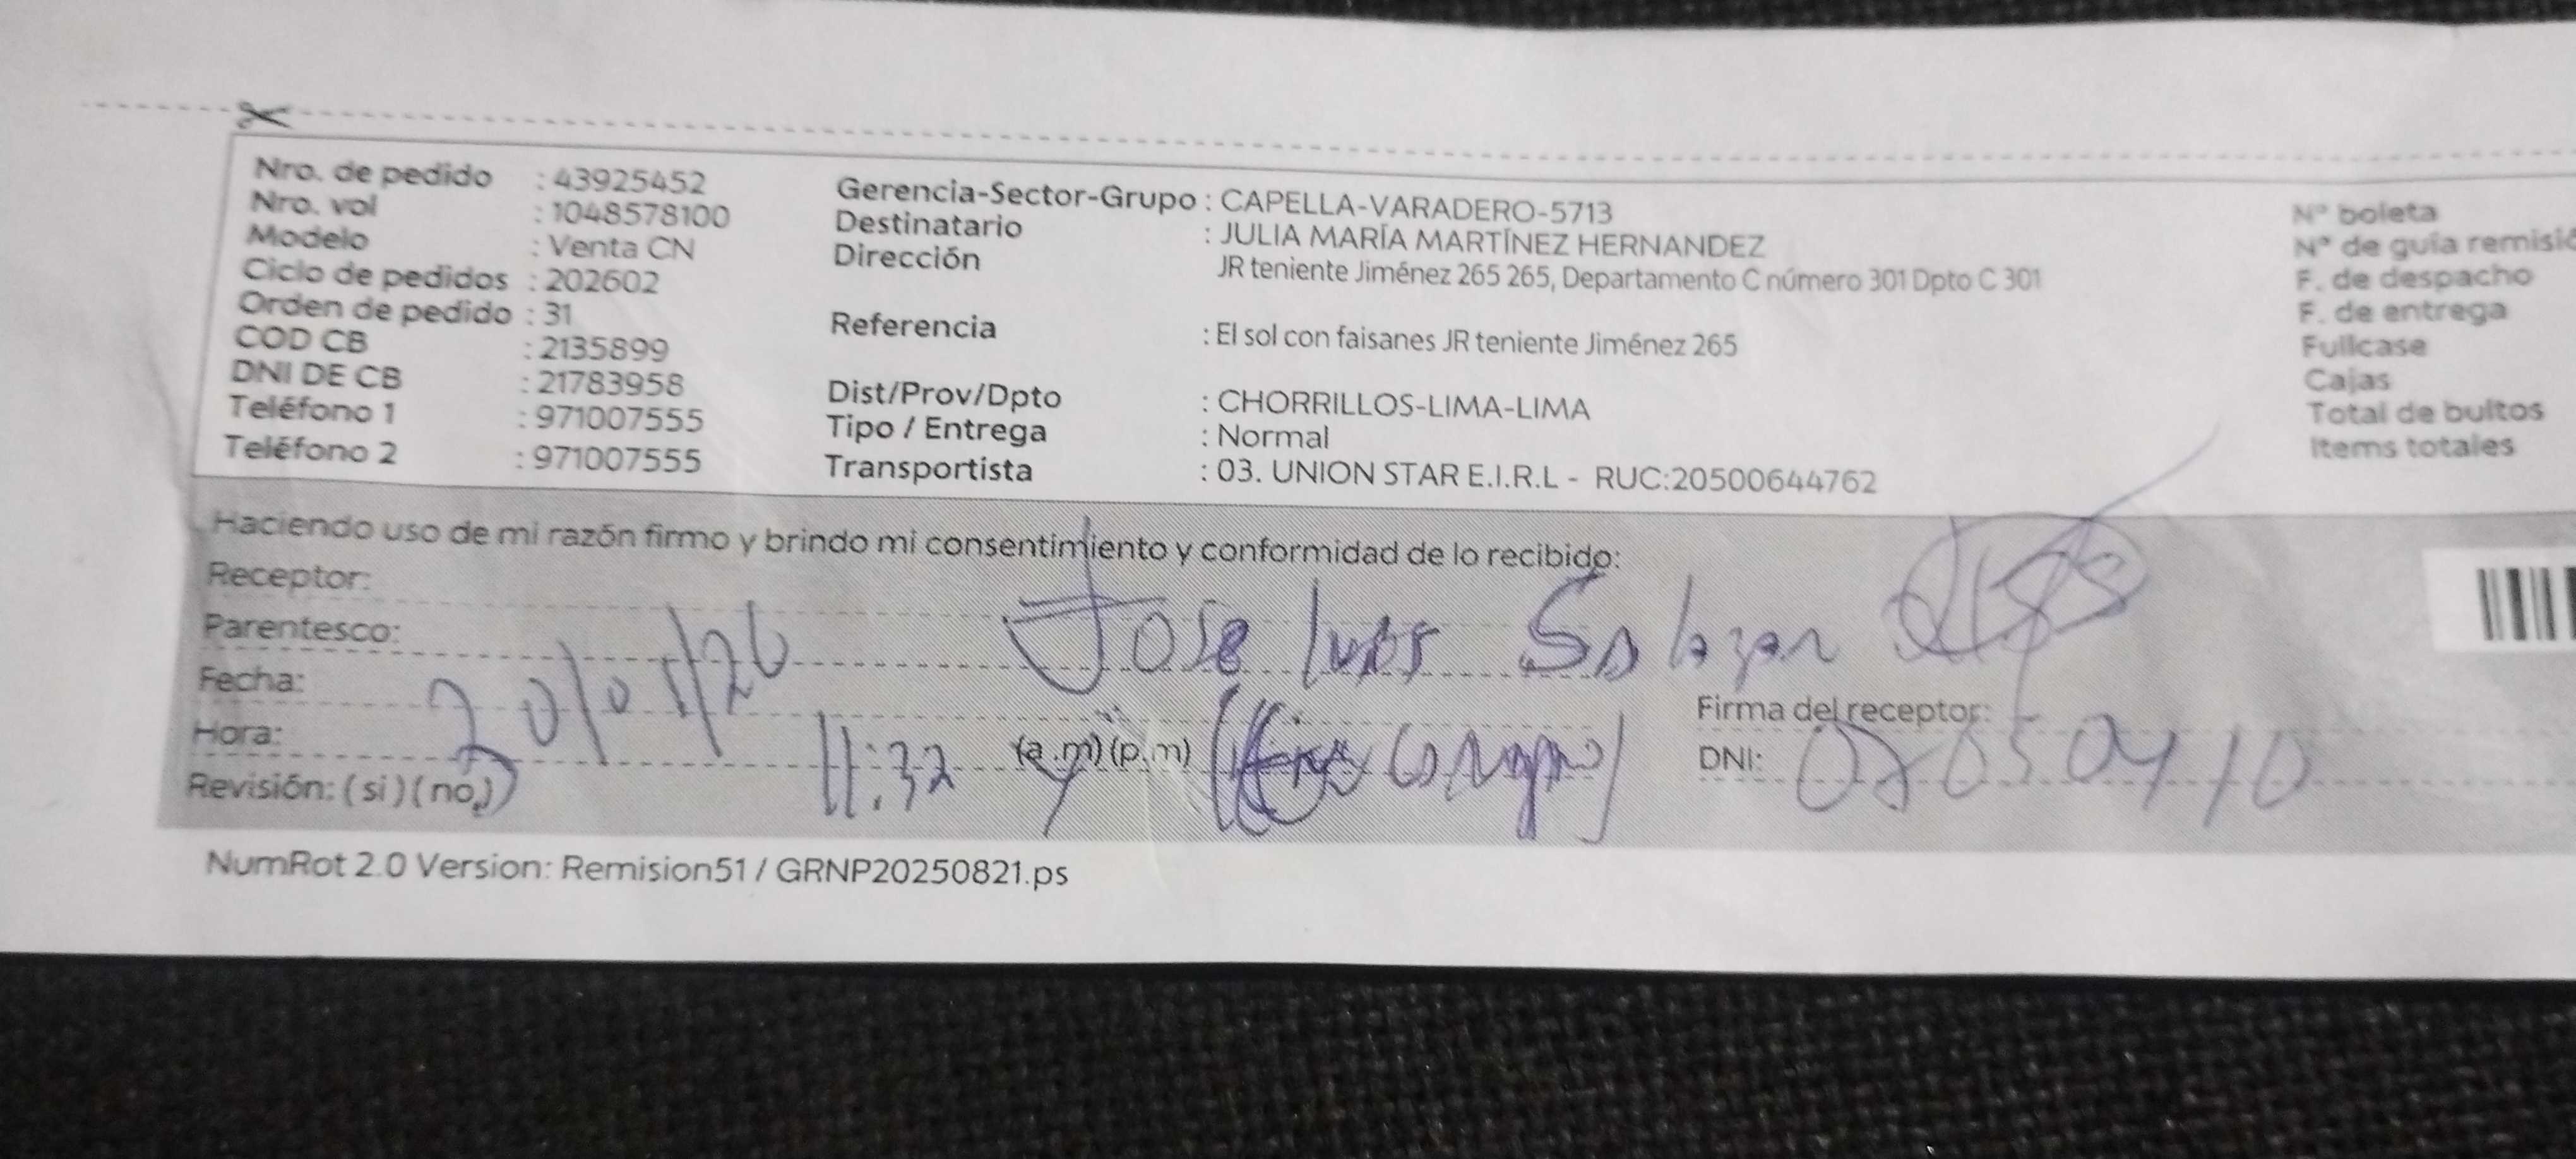 Nro. de pedido : 43925452
Nro. vol : 1048578100
Modelo : Venta CN
Ciclo de pedidos : 202602
Orden de pedido : 31
COD CB : 2135899
DNI DE CB : 21783958
Teléfono 1 : 971007555
Teléfono 2 : 971007555
Gerencia-Sector-Grupo : CAPELLA-VARADERO-5713
Destinatario : JULIA MARÍA MARTÍNEZ HERNANDEZ
Dirección JR teniente Jiménez 265 265, Departamento C número 301 Dpto C 301
Referencia : El sol con faisanes JR teniente Jiménez 265
Dist/Prov/Dpto : CHORRILLOS-LIMA-LIMA
Tipo / Entrega : Normal
Transportista : 03. UNION STAR E.I.R.L - RUC:20500644762
N° boleta
N° de guía remisió
F. de despacho
F. de entrega
Fullcase
Cajas
Total de bultos
Items totales
Haciendo uso de mi razón firmo y brindo mi consentimiento y conformidad de lo recibido:
Receptor:
Parentesco: Jose luis Salazar
Fecha: 20/01/26
Firma del receptor:
Hora: 11:32 (a.m) (p.m)
DNI:
Revisión: ( si ) ( no )
NumRot 2.0 Version: Remision51 / GRNP20250821.ps